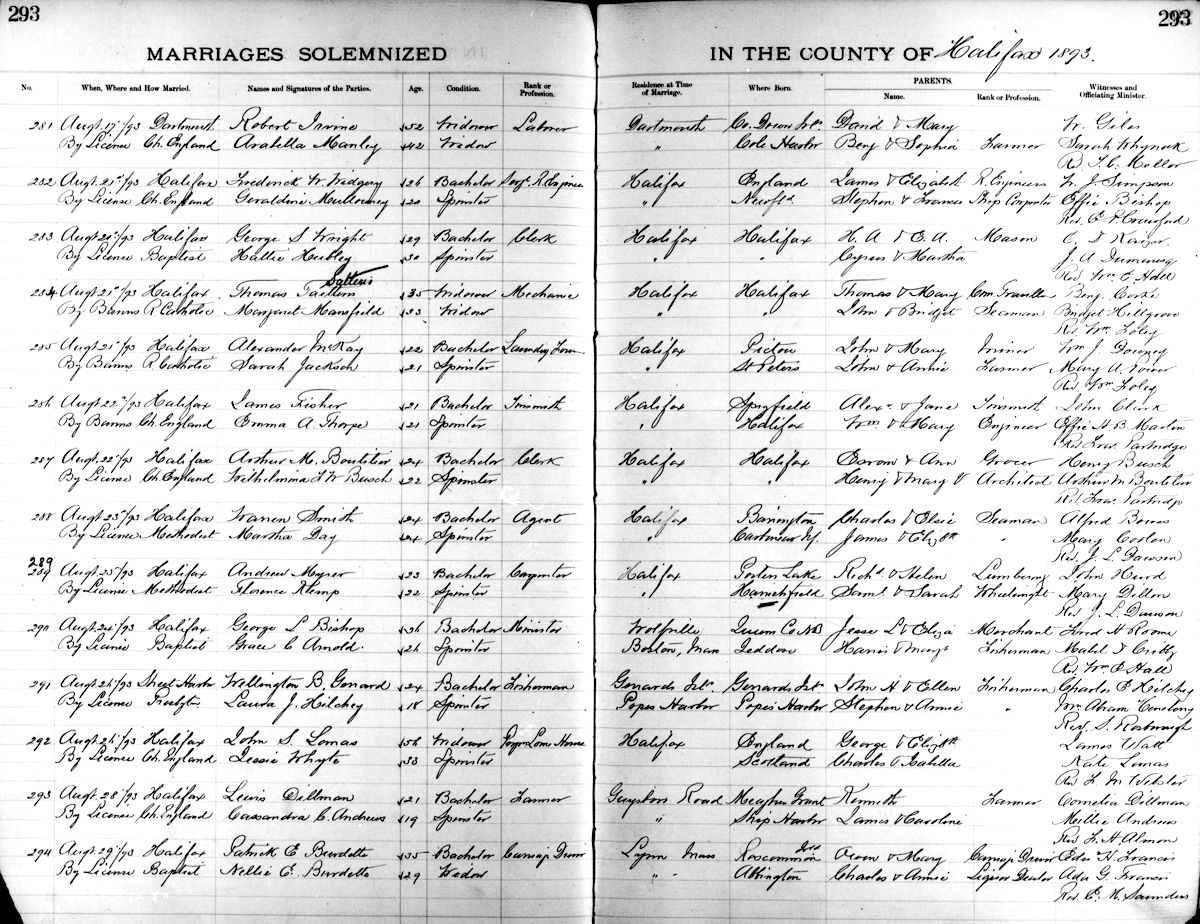 293 293
MARRIAGES SOLEMNIZED IN THE COUNTY OF Halifax 1893.
No. When, Where and How Married. Names and Signatures of the Parties. Age. Condition. Rank or Profession. Residence at Time of Marriage. Where Born. PARENTS. Name. Rank or Profession. Witnesses and Officiating Minister.
281 Augt 17"/93 Dartmouth Robert Irvine 52 Widower Laborer Dartmouth Co. Down Irl. David & Mary W. Giles
By License Ch. England Arabella Manley 42 Widow " Cole Harbor Benj & Sophia Farmer Sarah Whynock
Rev. T. C. Mellor
282 Augt. 21st/93 Halifax Frederick W. Widgery 26 Bachelor Sergt. R. Engineer Halifax England James & Elizabeth R. Engineers W. J. Simpson
By License Ch. England Geraldine Mullowney 20 Spinster " Newfld Stephen & Frances Ship Carpenter Effie Bishop
Rev. E. P. Crawford
283 Augt 21st/93 Halifax George S Wright 29 Bachelor Clerk Halifax Halifax H. A & E. A. Mason C. D Kaizer
By License Baptist Hallie Hubley 30 Spinster " " Cyrus & Martha J. A Dumaresq
Rev Wm E. Hall
Salteris
284 Augt 21st/93 Halifax Thomas 35 Widower Mechanic Halifax Halifax Thomas & Mary Com. Traveller Benj. Corke
By Banns R Catholic Margaret Mansfield 33 Widow " " John & Bridget Seaman Bridget Hillgrove
Rev. Wm Foley
285 Augt 21st/93 Halifax Alexander McKay 22 Bachelor Halifax Pictou John & Mary Miner Wm J. Downey
By Banns R Catholic Sarah Jackson 21 Spinster " St Peters John & Annie Farmer Mary A. Power
Rev Wm Foley
286 Augt 22"/93 Halifax James Fisher 21 Bachelor Tinsmith Halifax Spryfield Alexr & Jane Tinsmith John Clark
By Banns Ch. England Emma A Thorpe 21 Spinster " Halifax Wm & Mary Engineer Effie H. B Marlen
Rev Fras. Partridge
287 Augt 22"/93 Halifax Arthur M. Boutilier 24 Bachelor Clerk Halifax Halifax Esrom & Ann Grocer Henry Busch
By License Ch. England Wilhelmina F W Busch 22 Spinster " " Henry & Mary V Architect Arthur M Boutilier
Rev Fras. Partridge
288 Augt 23"/93 Halifax Warren Smith 24 Bachelor Agent Halifax Barrington Charles & Elsie Seaman Alfred Bowes
By License Methodist Martha Day 24 Spinster " James & Elizbth " Mary Coolen
Rev. J. L. Dawson
289
289 Augt 25"/93 Halifax Andrew Myrer 23 Bachelor Carpenter Halifax Porters Lake Richd & Helen Lumbering John Hurd
By License Methodist Florence Klemp 22 Spinster " Harrichfield Saml & Sarah Wheelwright Mary Dillon
Rev J. L Dawson
290 Augt 24"/93 Halifax George L Bishop 36 Bachelor Minister Wolfville Queens Co NB Jesse L & Eliza Merchant Fred H Roome
By License Baptist Grace C Arnold 26 Spinster Boston, Mass Jeddore Harris & Margt Fisherman Mabel D Cribby
Rev. Wm E Hall
291 Augt 26"/93 Sheet Harbor Wellington B. Gerrard 24 Bachelor Fisherman Gerrards Isld Gerrards Isl John H & Ellen Fisherman Charles E Hilchey
By License Presbytn Laura J. Hilchey 18 Spinster Popes Harbor Popes Harbor Stephen & Annie " Mrs. Abram
Rev. S. Rosborough
292 Augt 26"/93 Halifax John S. Lomas 56 Widower Halifax England George & Elizbth James Watt
By License Ch. England Jessie Whyte 33 Spinster Scotland Charles & Isabella Kate Lomas
Rev F. M Webster
293 Augt 28"/93 Halifax Lewis Dillman 21 Bachelor Farmer Guysboro Road Meaghers Grant Kenneth Farmer Cornelia Dillman
By License Ch. England Cassandra C. Andrews 19 Spinster " Ship Harbor James & Caroline Millie Andrews
Rev F. H Almon
294 Augt 29"/93 Halifax Patrick E Burdette 35 Bachelor Carriage Driver Lynn Mass Roscommon Ird Owen & Mary Carriage Driver Edw. H. Francis
By License Baptist Nellie E. Burdette 29 Widow " " Abington Charles & Annie Liquor Dealer Ada G. Francis
Rev. E. M. Saunders